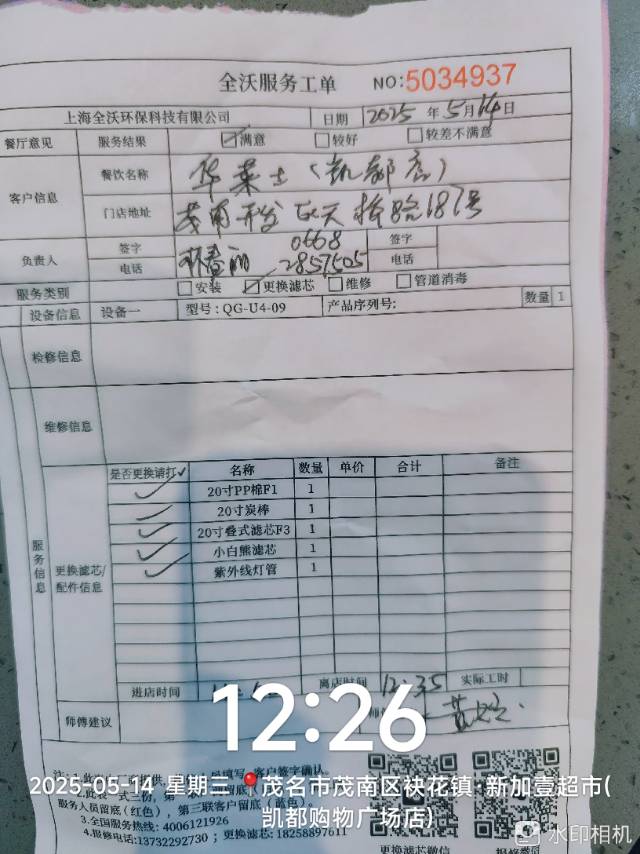 全沃服务工单 NO:5034937
上海全沃环保科技有限公司 日期 2025 年 5 月 14 日
餐厅意见 服务结果 ☑满意 □较好 □较差不满意
客户信息 餐饮名称 华莱士(凯都店)
门店地址 茂南开发区天桥路187号
负责人 签字 签字
电话 0668 2857505 电话
服务类别 □安装 ☑更换滤芯 □维修 □管道消毒
设备信息 设备一 型号:QG-U4-09 产品序列号: 数量 1
检修信息
维修信息
服务信息
更换滤芯/配件信息
是否更换请打✓ 名称 数量 单价 合计 备注
✓ 20寸PP棉F1 1
✓ 20寸炭棒 1
✓ 20寸叠式滤芯F3 1
✓ 小白熊滤芯 1
✓ 紫外线灯管 1
进店时间 离店时间 12:35 实际工时
师傅建议
12:26
2025-05-14 星期三 茂名市茂南区袂花镇·新加壹超市(
凯都购物广场店)
服务人员留底(红色),第三联客户留底(蓝色)。
3.全国服务热线:4006121926
4.报修电话:13732292730;更换滤芯:18258897611
更换滤芯微信
水印相机